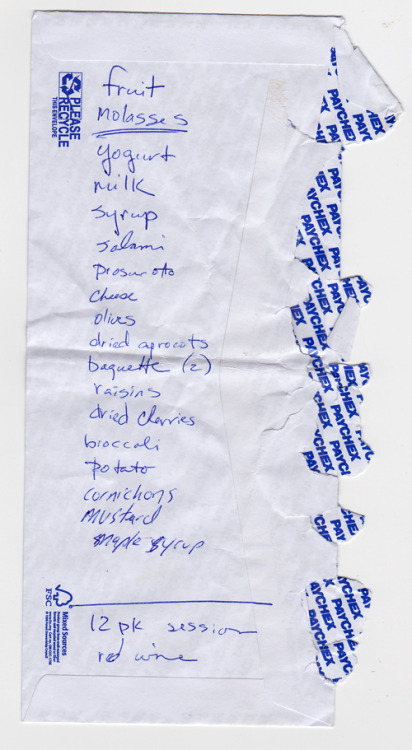 PLEASE
RECYCLE
THIS ENVELOPE
fruit
Molasses
yogurt
milk
syrup
salami
cheese
olives
dried aprocots
baguette (2)
raisins
dried cherries
broccoli
potato
cornichons
Mustard
maple syrup
12 pk session
red wine
Mixed Sources
FSC
PAYCHEX
PAYCHEX
PAYCHEX
PAYCHEX
PAYCHEX
PAYCHEX